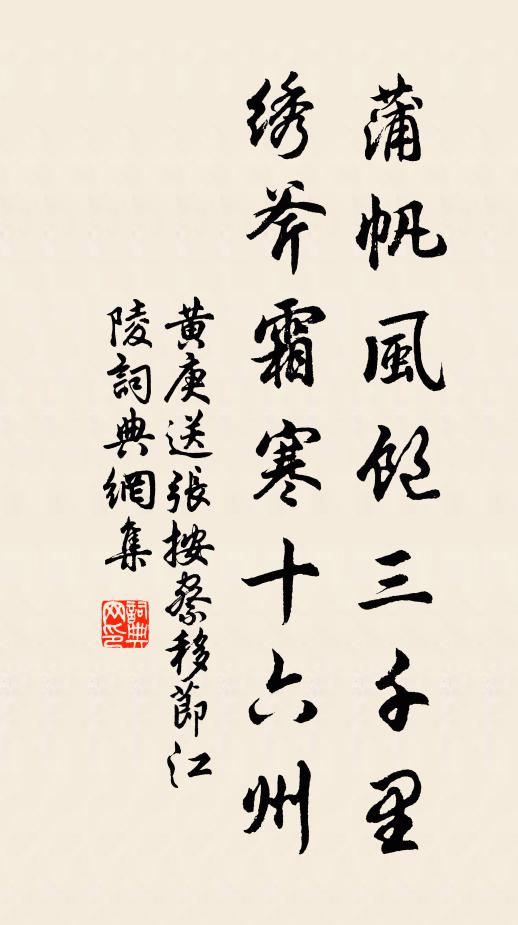 蒲帆風飽三千里
绣斧霜寒十六州
黄庚送張按察移節江
陵詞典網集
詞典
网印